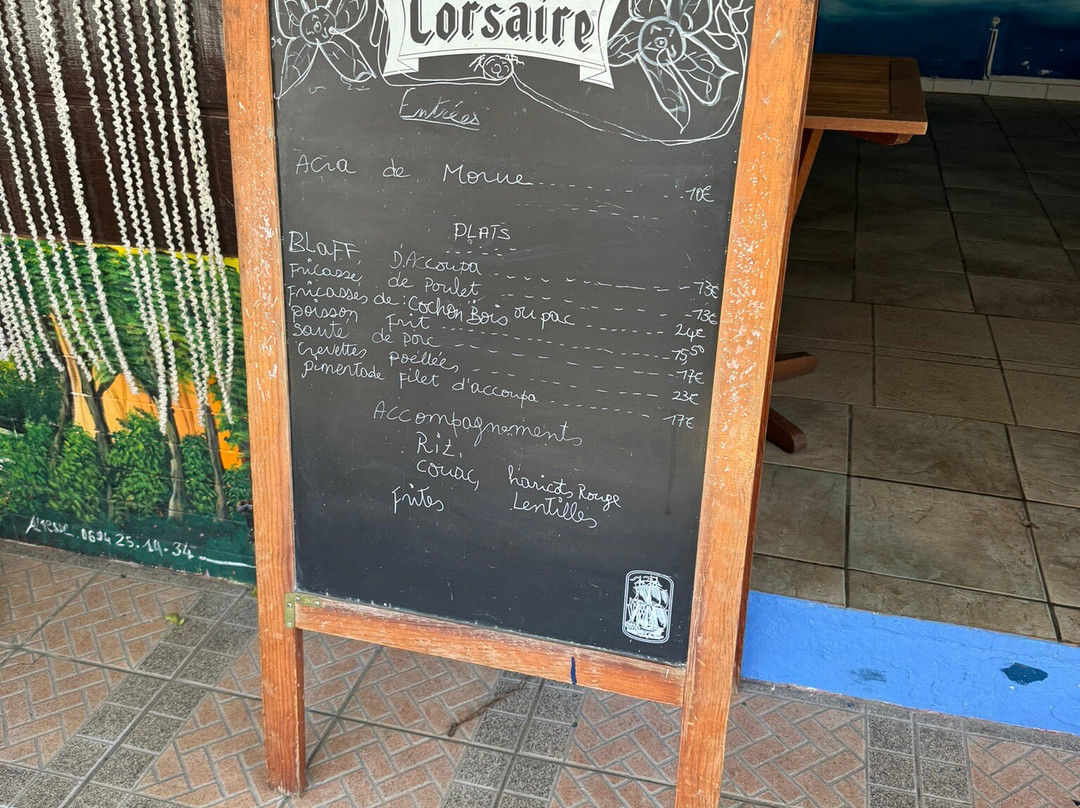 Corsaire
Entrées
Acra de Morue 10€
PLATS
BLAFF D'Accoupa 13€
Fricassé de Poulet 13€
Fricassés de: Cochon Bois ou pac 24€
poisson Frit 15,50
Sauté de porc 17€
Crevettes poéllées 23€
pimentade Filet d'accoupa 17€
Accompagnements
Riz,
couac, haricots Rouge
frites Lentilles
0694 25.14-34